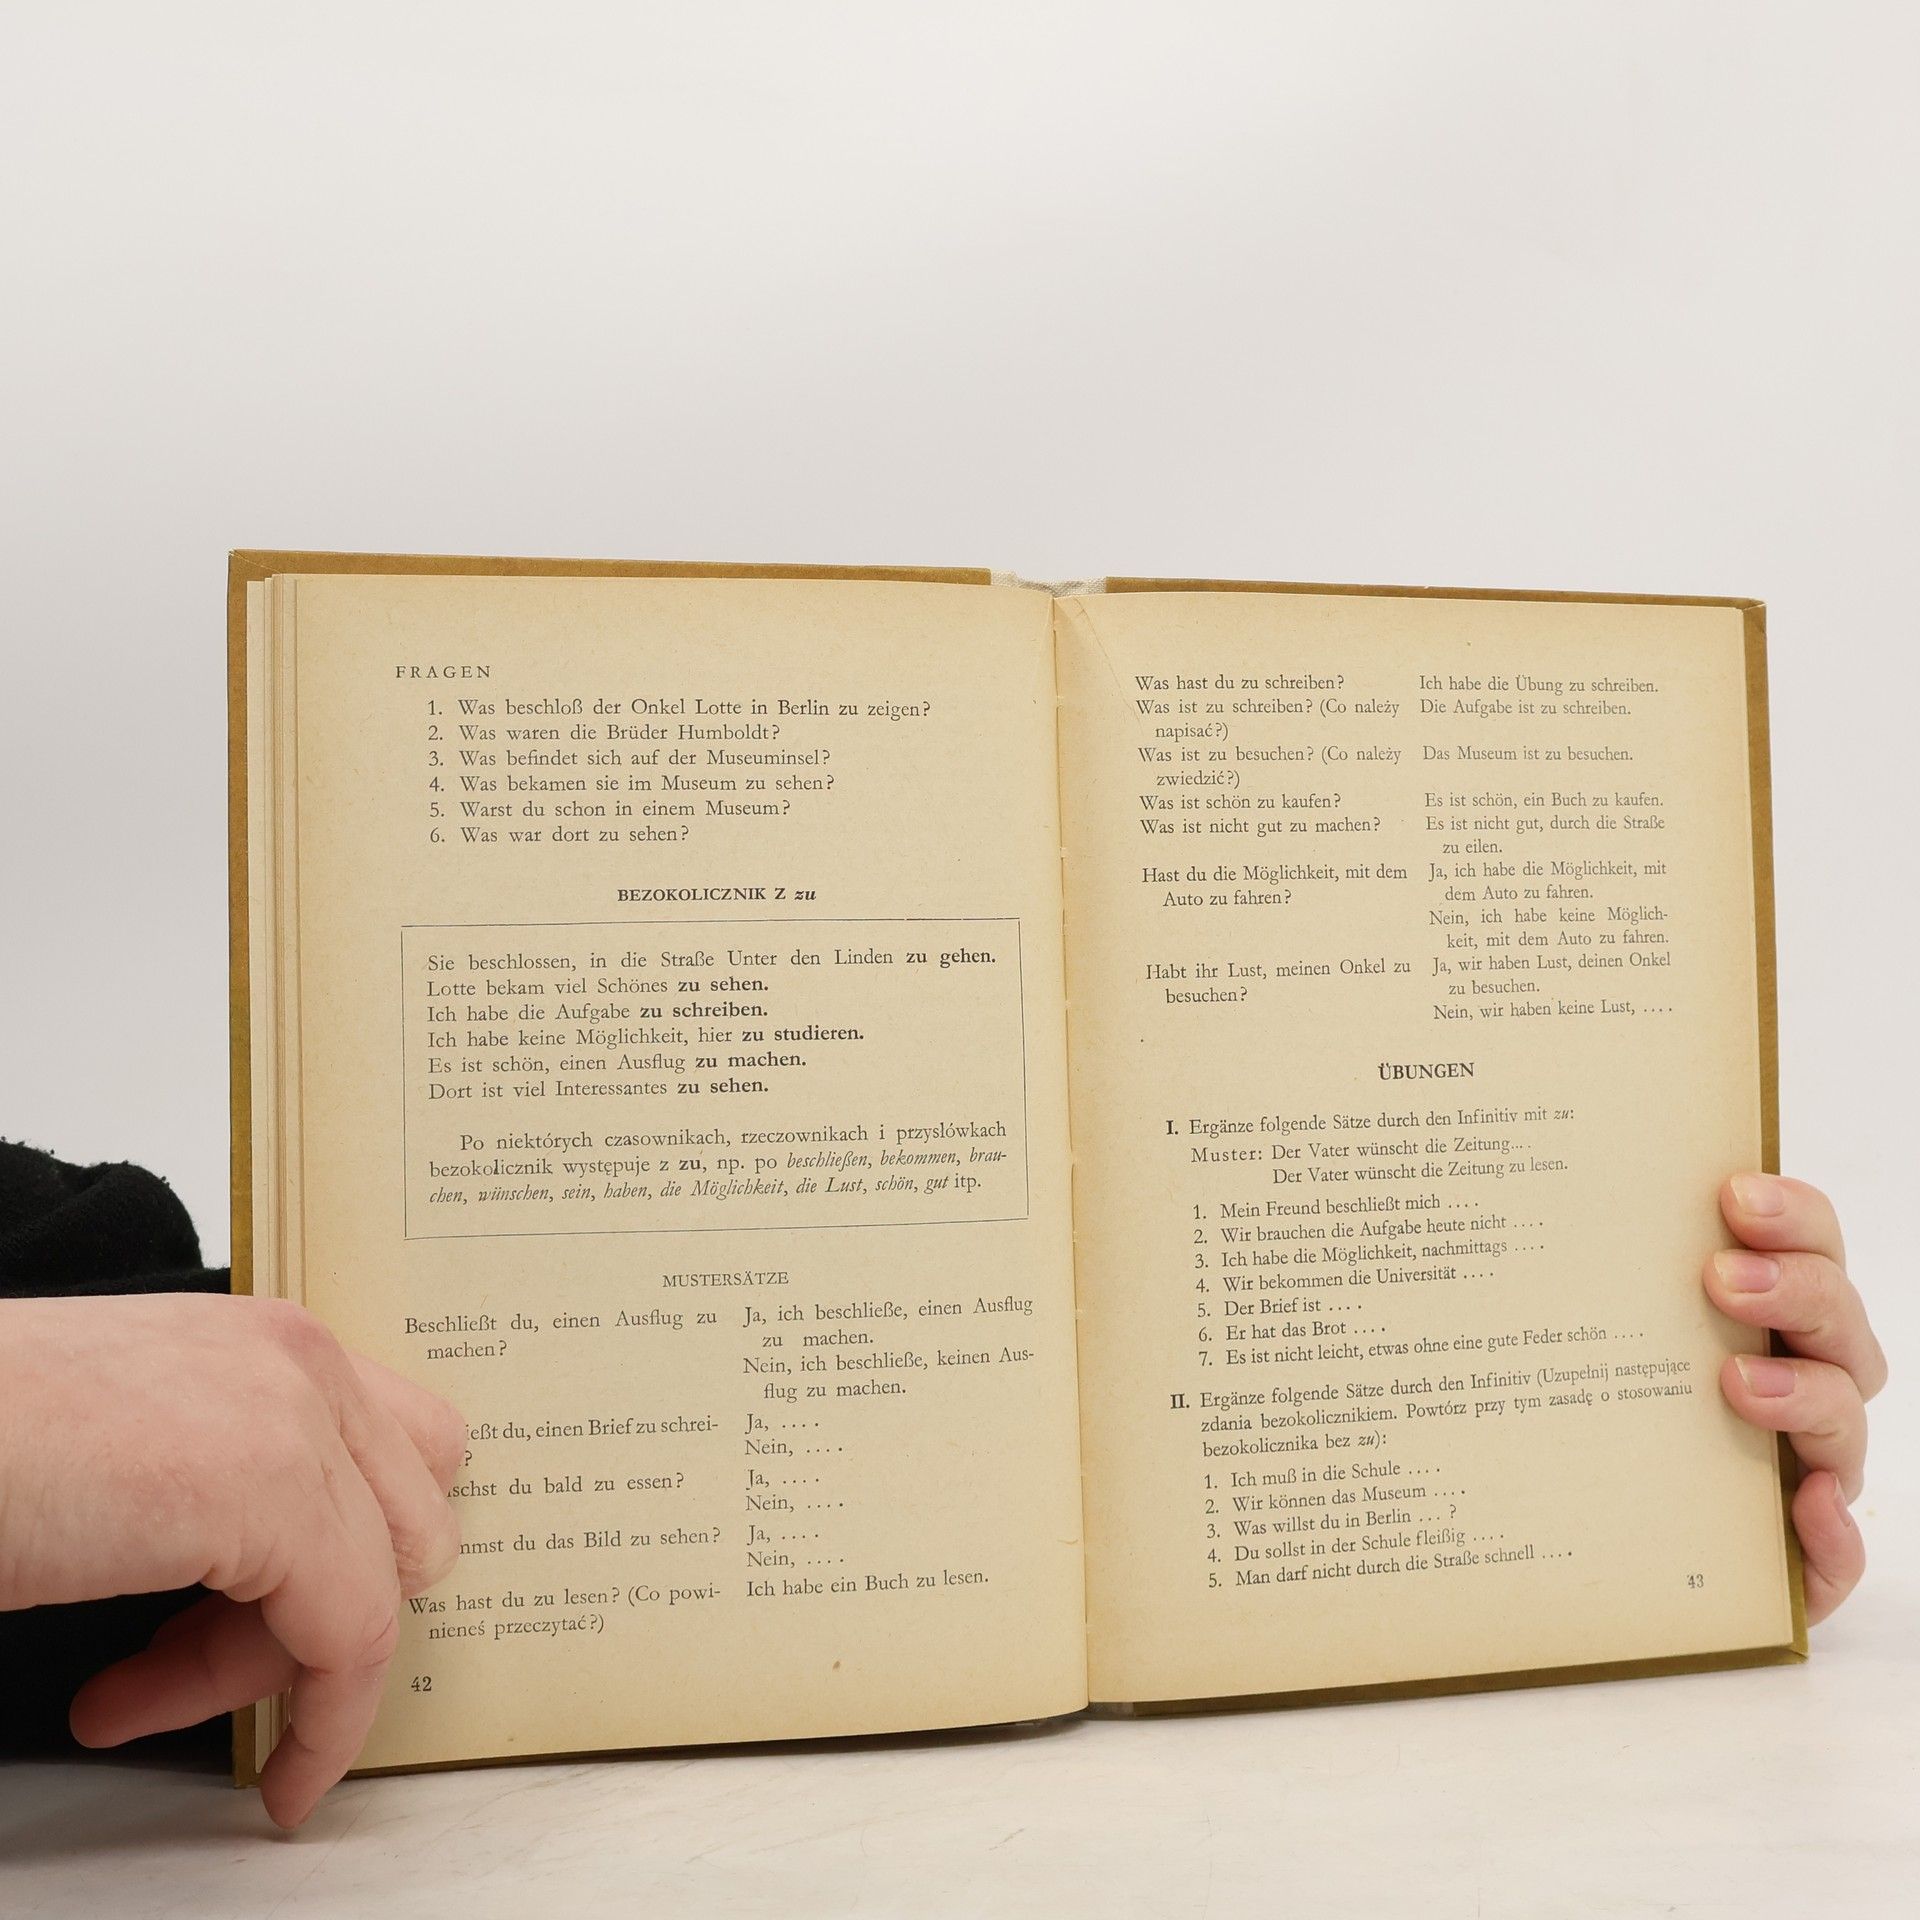 FRAGEN
1. Was beschloß der Onkel Lotte in Berlin zu zeigen?
2. Was waren die Brüder Humboldt?
3. Was befindet sich auf der Museuminsel?
4. Was bekamen sie im Museum zu sehen?
5. Warst du schon in einem Museum?
6. Was war dort zu sehen?
BEZOKOLICZNIK Z zu
Sie beschlossen, in die Straße Unter den Linden zu gehen.
Lotte bekam viel Schönes zu sehen.
Ich habe die Aufgabe zu schreiben.
Ich habe keine Möglichkeit, hier zu studieren.
Es ist schön, einen Ausflug zu machen.
Dort ist viel Interessantes zu sehen.
Po niektórych czasownikach, rzeczownikach i przysłówkach
bezokolicznik występuje z zu, np. po beschließen, bekommen, brau-
chen, wünschen, sein, haben, die Möglichkeit, die Lust, schön, gut itp.
MUSTERSÄTZE
Beschließt du, einen Ausflug zu
machen?
Ja, ich beschließe, einen Ausflug
zu machen.
Nein, ich beschließe, keinen Aus-
flug zu machen.
ießt du, einen Brief zu schrei-
?
Ja, ....
Nein, ....
schst du bald zu essen?
Ja, ....
Nein, ....
mmst du das Bild zu sehen?
Ja, ....
Nein, ....
Was hast du zu lesen? (Co powi-
nieneś przeczytać?)
Ich habe ein Buch zu lesen.
42
Was hast du zu schreiben?
Ich habe die Übung zu schreiben.
Was ist zu schreiben? (Co należy
napisać?)
Die Aufgabe ist zu schreiben.
Was ist zu besuchen? (Co należy
zwiedzić?)
Das Museum ist zu besuchen.
Was ist schön zu kaufen?
Es ist schön, ein Buch zu kaufen.
Was ist nicht gut zu machen?
Es ist nicht gut, durch die Straße
zu eilen.
Hast du die Möglichkeit, mit dem
Auto zu fahren?
Ja, ich habe die Möglichkeit, mit
dem Auto zu fahren.
Nein, ich habe keine Möglich-
keit, mit dem Auto zu fahren.
Habt ihr Lust, meinen Onkel zu
besuchen?
Ja, wir haben Lust, deinen Onkel
zu besuchen.
Nein, wir haben keine Lust, ....
ÜBUNGEN
I. Ergänze folgende Sätze durch den Infinitiv mit zu:
Muster: Der Vater wünscht die Zeitung....
Der Vater wünscht die Zeitung zu lesen.
1. Mein Freund beschließt mich ....
2. Wir brauchen die Aufgabe heute nicht ....
3. Ich habe die Möglichkeit, nachmittags ....
4. Wir bekommen die Universität ....
5. Der Brief ist ....
6. Er hat das Brot ....
7. Es ist nicht leicht, etwas ohne eine gute Feder schön ....
II. Ergänze folgende Sätze durch den Infinitiv (Uzupełnij następujące
zdania bezokolicznikiem. Powtórz przy tym zasadę o stosowaniu
bezokolicznika bez zu):
1. Ich muß in die Schule ....
2. Wir können das Museum ....
3. Was willst du in Berlin ... ?
4. Du sollst in der Schule fleißig ....
5. Man darf nicht durch die Straße schnell ....
43